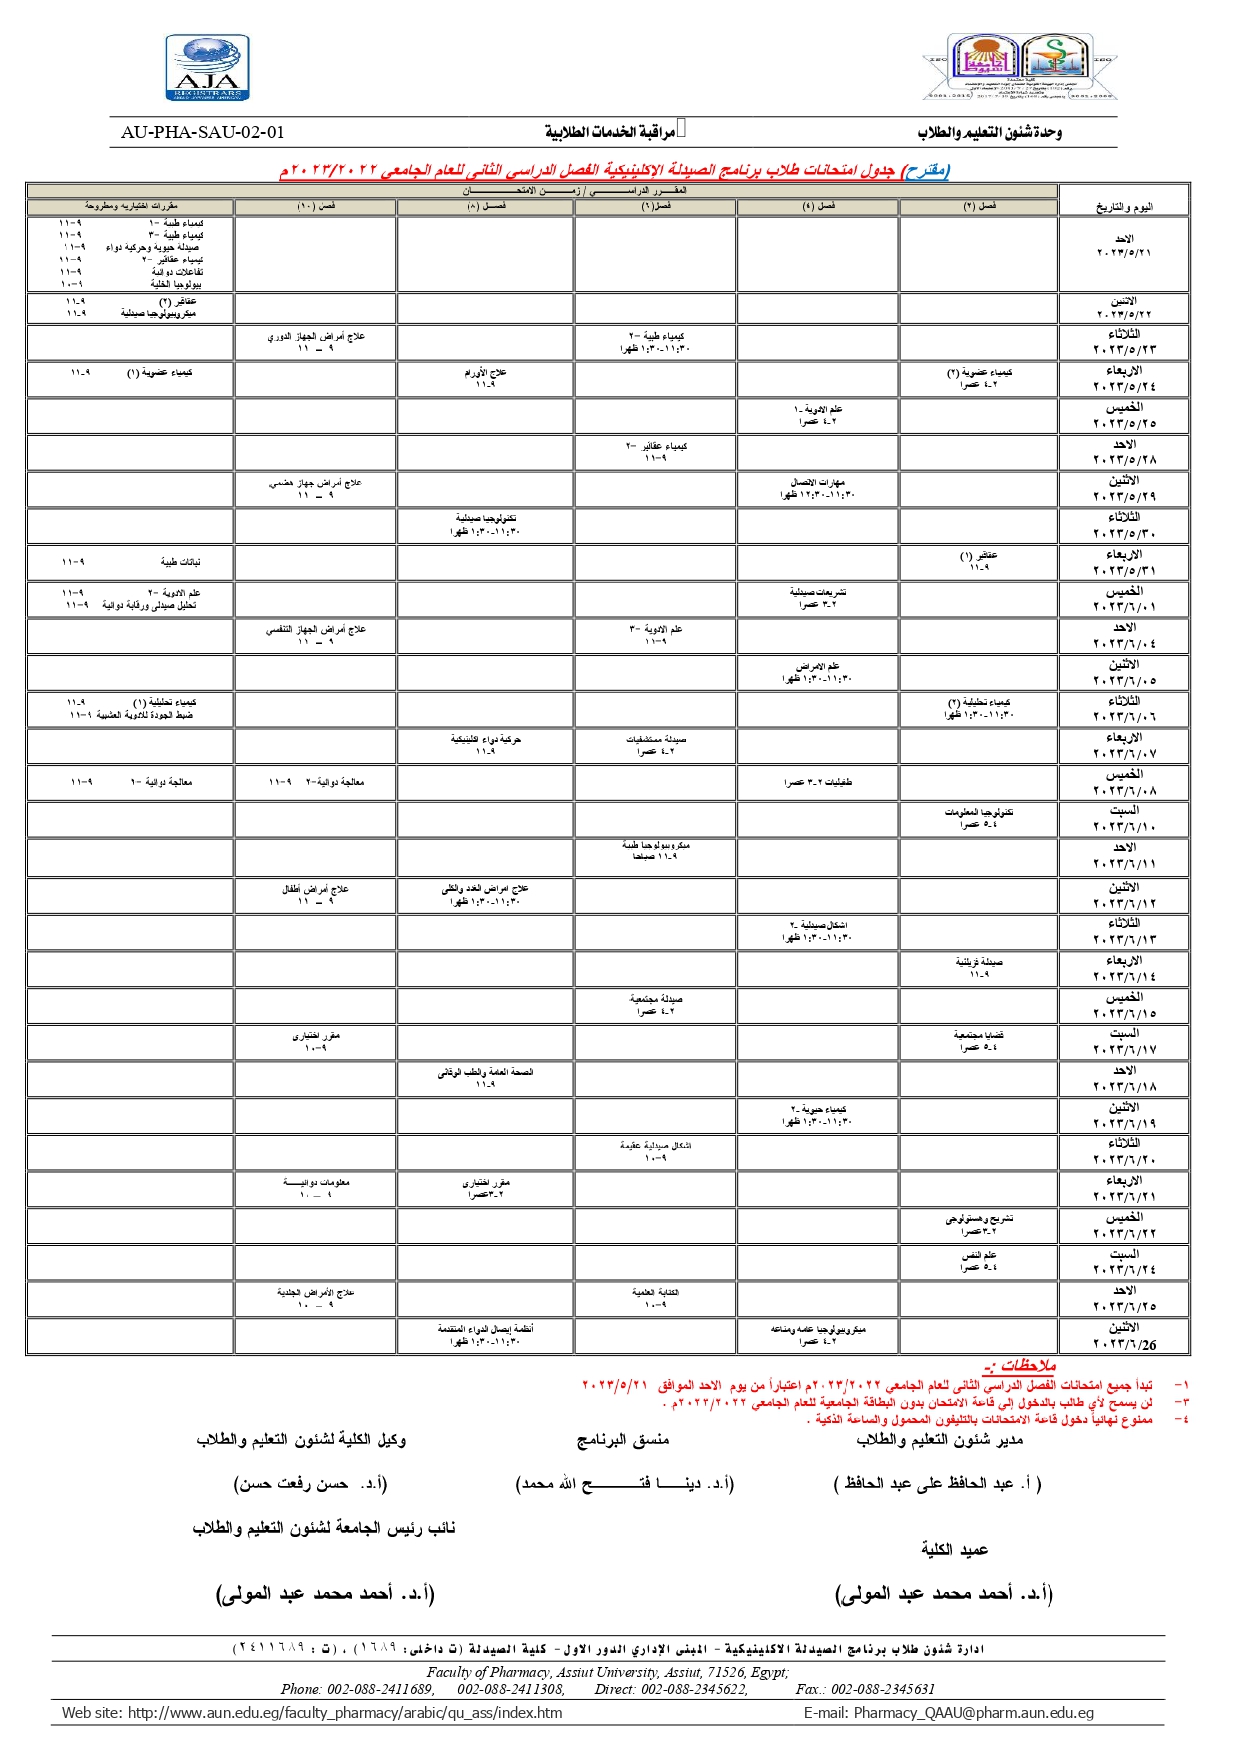 AJA
REGISTRARS
ISO
ISO
AU-PHA-SAU-02-01
مراقبة الخدمات الطلابية
وحدة شئون التعليم والطلاب
(مقترح) جدول امتحانات طلاب برنامج الصيدلة الإكلينيكية الفصل الدراسي الثاني للعام الجامعي ٢٠٢٣/٢٠٢٢م
اليوم والتاريخ
المقـــرر الدراســـــــي / زمـــــــن الامتحـــــــــان
فصل (٢) فصل (٤) فصل(٦) فصـــل (٨) فصل (١٠) مقررات اختياريه ومطروحة
الاحد
٢٠٢٣/٥/٢١
كيمياء طبية -١ ٩-١١
كيمياء طبية -٣ ٩-١١
صيدلة حيوية وحركية دواء ٩-١١
كيمياء عقاقير -٢ ٩-١١
تفاعلات دوائية ٩-١١
بيولوجيا الخلية ٩-١٠
الاثنين
٢٠٢٣/٥/٢٢
عقاقير (٢) ٩-١١
ميكروبيولوجيا صيدلية ٩-١١
الثلاثاء
٢٠٢٣/٥/٢٣
كيمياء طبية -٢
١١:٣٠-١:٣٠ ظهرا
علاج أمراض الجهاز الدوري
٩ – ١١
الاربعاء
٢٠٢٣/٥/٢٤
كيمياء عضوية (٢)
٢-٤ عصرا
علاج الأورام
٩-١١
كيمياء عضوية (١) ٩-١١
الخميس
٢٠٢٣/٥/٢٥
علم الادوية -١
٢-٤ عصرا
الاحد
٢٠٢٣/٥/٢٨
كيمياء عقاقير -٢
٩-١١
الاثنين
٢٠٢٣/٥/٢٩
مهارات الاتصال
١١:٣٠-١٢:٣٠ ظهرا
علاج أمراض جهاز هضمي
٩ – ١١
الثلاثاء
٢٠٢٣/٥/٣٠
تكنولوجيا صيدلية
١١:٣٠-١:٣٠ ظهرا
الاربعاء
٢٠٢٣/٥/٣١
عقاقير (١)
٩-١١
نباتات طبية ٩-١١
الخميس
٢٠٢٣/٦/٠١
تشريعات صيدلية
٢-٣ عصرا
علم الادوية -٢ ٩-١١
تحليل صيدلى ورقابة دوائية ٩-١١
الاحد
٢٠٢٣/٦/٠٤
علم الادوية -٣
٩-١١
علاج أمراض الجهاز التنفسي
٩ – ١١
الاثنين
٢٠٢٣/٦/٠٥
علم الامراض
١١:٣٠-١:٣٠ ظهرا
الثلاثاء
٢٠٢٣/٦/٠٦
كيمياء تحليلية (٢)
١١:٣٠-١:٣٠ ظهرا
كيمياء تحليلية (١) ٩-١١
ضبط الجودة للادوية العشبية ٩-١١
الاربعاء
٢٠٢٣/٦/٠٧
صيدلة مستشفيات
٢-٤ عصرا
حركية دواء اكلينيكية
٩-١١
الخميس
٢٠٢٣/٦/٠٨
طفيليات ٢-٣ عصرا
معالجة دوائية-٢ ٩-١١
معالجة دوائية -١ ٩-١١
السبت
٢٠٢٣/٦/١٠
تكنولوجيا المعلومات
٤-٥ عصرا
الاحد
٢٠٢٣/٦/١١
ميكروبيولوجيا طبية
٩-١١ صباحا
الاثنين
٢٠٢٣/٦/١٢
علاج امراض الغدد والكلى
١١:٣٠-١:٣٠ ظهرا
علاج أمراض أطفال
٩ – ١١
الثلاثاء
٢٠٢٣/٦/١٣
اشكال صيدلية -٢
١١:٣٠-١:٣٠ ظهرا
الاربعاء
٢٠٢٣/٦/١٤
صيدلة فزيائية
٩-١١
الخميس
٢٠٢٣/٦/١٥
صيدلة مجتمعية
٢-٤ عصرا
السبت
٢٠٢٣/٦/١٧
قضايا مجتمعية
٤-٥ عصرا
مقرر اختياري
٩-١٠
الاحد
٢٠٢٣/٦/١٨
الصحة العامة والطب الوقائى
٩-١١
الاثنين
٢٠٢٣/٦/١٩
كيمياء حيوية -٢
١١:٣٠-١:٣٠ ظهرا
الثلاثاء
٢٠٢٣/٦/٢٠
اشكال صيدلية عقيمة
٩-١٠
الاربعاء
٢٠٢٣/٦/٢١
مقرر اختياري
٢-٣عصرا
معلومات دوائيـــــة
٩ – ١٠
الخميس
٢٠٢٣/٦/٢٢
تشريح وهستولوجى
٢-٣عصرا
السبت
٢٠٢٣/٦/٢٤
علم النفس
٤-٥ عصرا
الاحد
٢٠٢٣/٦/٢٥
الكتابة العلمية
٩-١٠
علاج الأمراض الجلدية
٩ – ١٠
الاثنين
٢٠٢٣/٦/26
ميكروبيولوجيا عامه ومناعه
٢-٤ عصرا
أنظمة إيصال الدواء المتقدمة
١١:٣٠-١:٣٠ ظهرا
ملاحظات :-
١- تبدأ جميع امتحانات الفصل الدراسي الثاني للعام الجامعي ٢٠٢٣/٢٠٢٢م اعتباراً من يوم الاحد الموافق ٢٠٢٣/٥/٢١
٣- لن يسمح لأي طالب بالدخول إلى قاعة الامتحان بدون البطاقة الجامعية للعام الجامعي ٢٠٢٣/٢٠٢٢م .
٤- ممنوع نهائياً دخول قاعة الامتحانات بالتليفون المحمول والساعة الذكية .
مدير شئون التعليم والطلاب
منسق البرنامج
وكيل الكلية لشئون التعليم والطلاب
( أ. عبد الحافظ على عبد الحافظ )
(أ.د. دينـــــا فتــــــــح الله محمد)
(أ.د. حسن رفعت حسن)
نائب رئيس الجامعة لشئون التعليم والطلاب
عميد الكلية
(أ.د. أحمد محمد عبد المولى)
(أ.د. أحمد محمد عبد المولى)
ادارة شئون طلاب برنامج الصيدلة الاكلينيكية - المبنى الإداري الدور الاول - كلية الصيدلة (ت داخلى: ١٦٨٩) ، (ت : ٢٤١١٦٨٩)
Faculty of Pharmacy, Assiut University, Assiut, 71526, Egypt;
Phone: 002-088-2411689, 002-088-2411308, Direct: 002-088-2345622, Fax.: 002-088-2345631
Web site: http://www.aun.edu.eg/faculty_pharmacy/arabic/qu_ass/index.htm
E-mail: Pharmacy_QAAU@pharm.aun.edu.eg